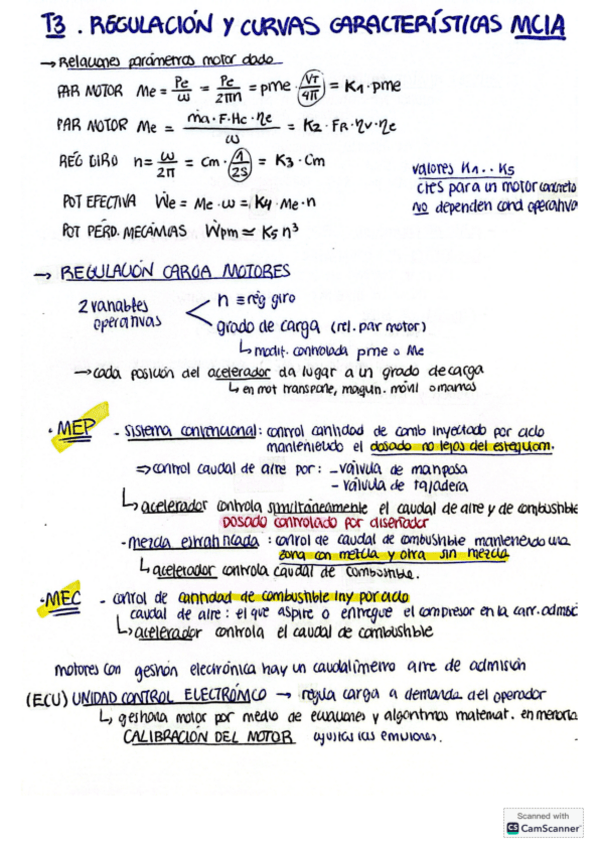 T3. REGULACIÓN Y CURVAS CARACTERÍSTICAS MCIA
→ Relaciones parámetros motor dado
PAR MOTOR Me = Pe/ω = Pe/2πn = pme · (VT/4π) = K1 · pme
PAR MOTOR Me = ṁa · F · Hc · ηe / ω = K2 · FR · ηv · ηe
RÉG GIRO n = ω/2π = Cm · (1/2S) = K3 · Cm
valores K1..K5
ctes para un motor concreto
no dependen cond operativa
POT EFECTIVA Ẇe = Me · ω = K4 · Me · n
POT PÉRD. MECÁNICAS Ẇpm ≃ K5 n³
→ REGULACIÓN CARGA MOTORES
2 variables operativas
n ≡ rég giro
grado de carga (rel. par motor)
↳ modif. controlada pme o Me
→ cada posición del acelerador da lugar a un grado de carga
↳ en mot transporte, maquin. móvil o manos
· MEP - sistema convencional: control cantidad de comb inyectado por ciclo
manteniendo el dosado no lejos del estequiom.
⇒ control caudal de aire por: - válvula de mariposa
- válvula de tajadera
↳ acelerador controla simultáneamente el caudal de aire y de combustible
DOSADO CONTROLADO POR DISEÑADOR
- mezcla estratificada: control de caudal de combustible manteniendo una
zona con mezcla y otra sin mezcla
↳ acelerador controla caudal de combustible.
· MEC - control de cantidad de combustible iny por ciclo
caudal de aire: el que aspire o entregue el compresor en la carr. admisi
↳ acelerador controla el caudal de combustible
motores con gestión electrónica hay un caudalímetro aire de admisión
(ECU) UNIDAD CONTROL ELECTRÓNICO → regula carga a demanda del operador
↳ gestiona motor por medio de ecuaciones y algoritmos matemat. en memoria
CALIBRACIÓN DEL MOTOR ajusta las emisiones.
Scanned with
CS CamScanner